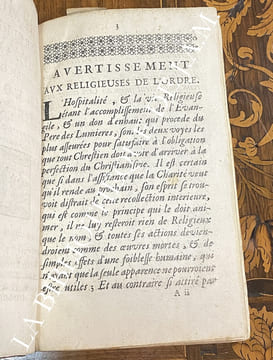 3
AVERTISSEMENT
AVX RELIGIEUSES DE L'ORDRE.
L'Hospitalité, & la vie Religieuse
étant l'accomplissement de l'Evan-
gile, & un don d'enhaut qui procede du
Pere des Lumieres; sont les deux voyes les
plus asseurées pour satisfaire à l'obligation
que tout Chrestien doit avoir d'arriver à la
perfection du Christianisme. Il est certain
que si dans l'assistance que la Charité veut
qu'il rende au prochain, son esprit se trou-
voit distrait de cette recollection interieure,
qui est comme le principe qui le doit ani-
mer, il ne luy resteroit rien de Religieux
que le nom, & toutes ses actions devien-
droient comme des œuvres mortes, & de
simples effets d'une foiblesse humaine, qui
n'ayant que la seule apparence ne pourroient
estre utiles; Et au contraire si attiré par
A ii